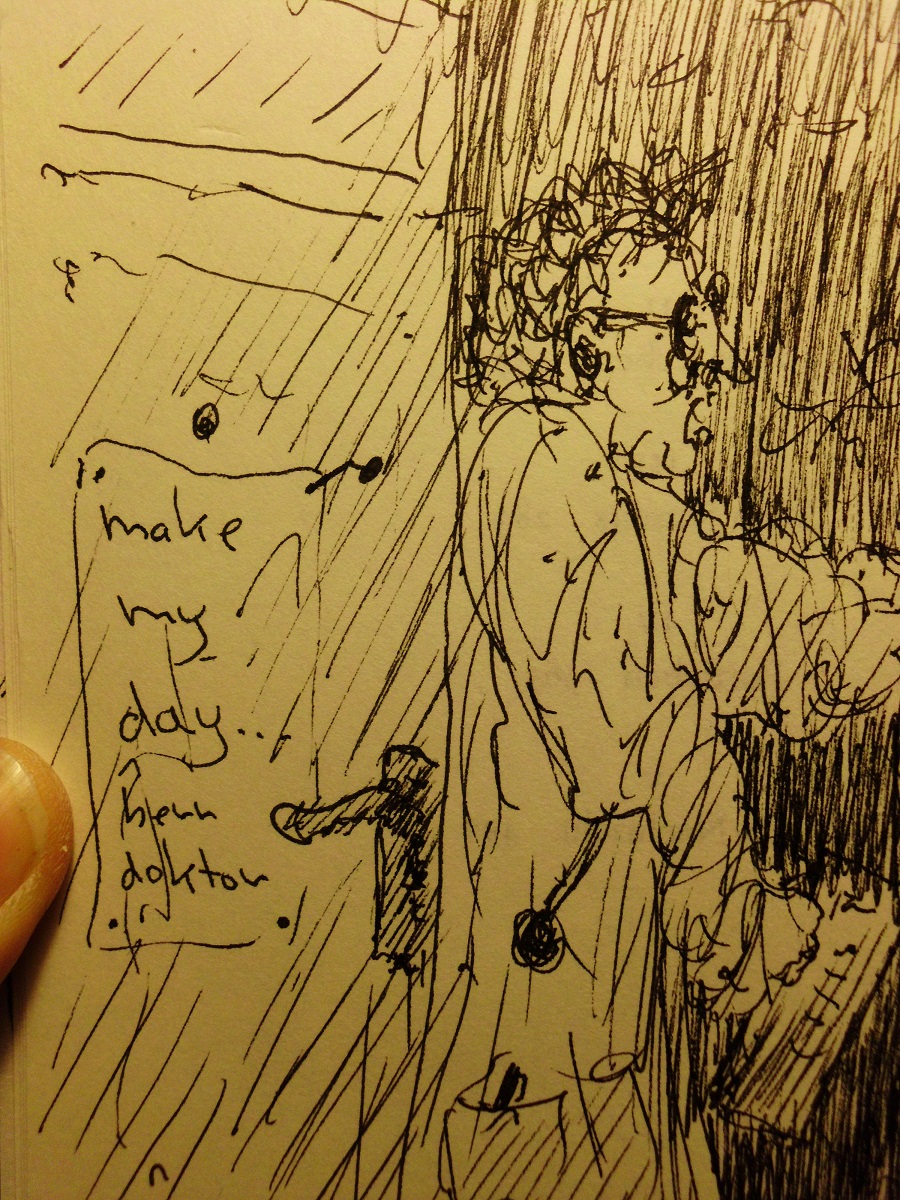 make
my
day..
herr
doktor